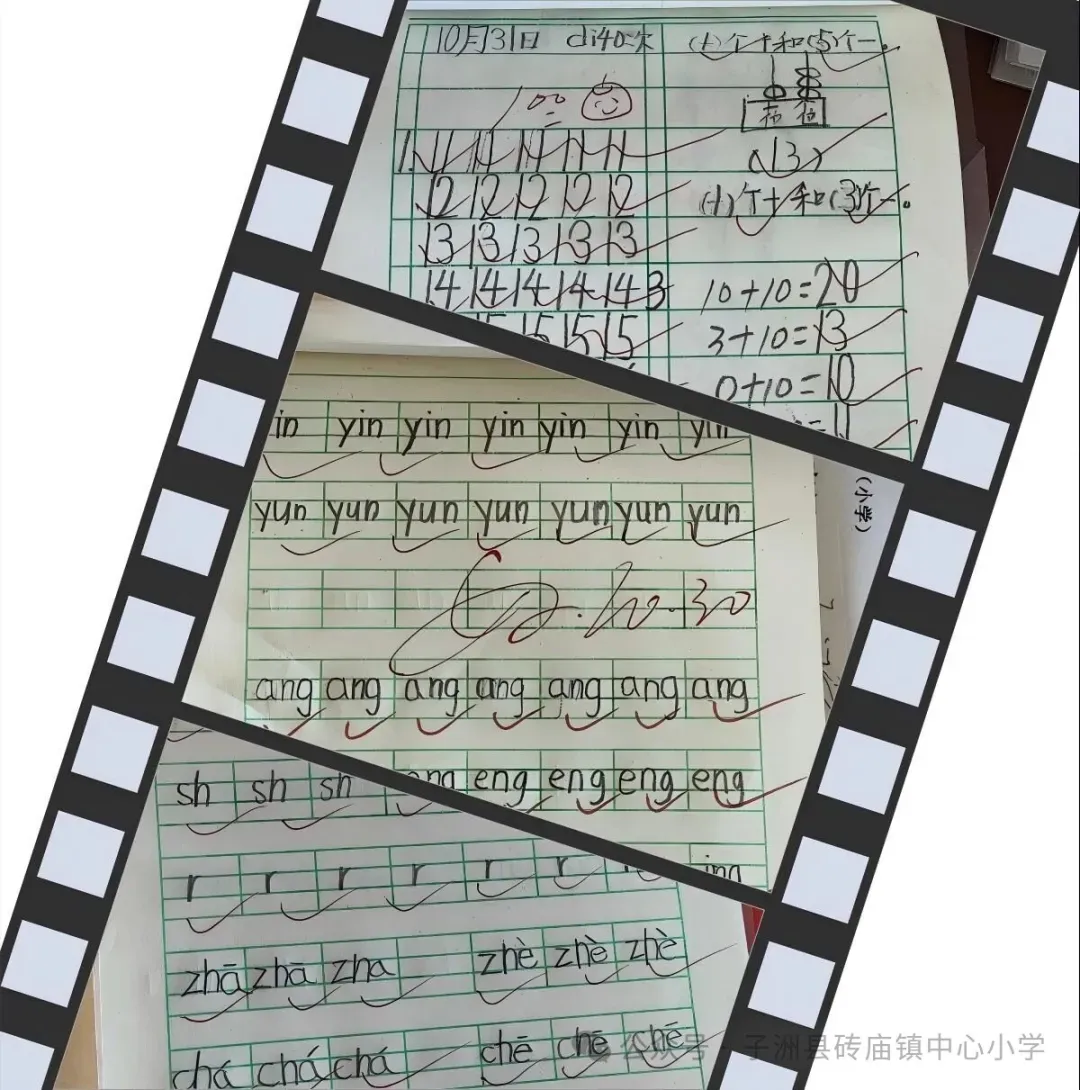 10月31日 di40次
(十)个十和(5)个一。
100
1. 11 11 11 11 11
12 12 12 12 12
13 13 13 13 13
14 14 14 14 14 3
15 15 15
(13)
(十)个十和(3)个一。
10+10=20
3+10=13
0+10=10
=11
in yin yin yin yin yin yin
yun yun yun yun yun yun yun
10.30
ang ang ang ang ang ang ang
eng eng eng eng eng
ing
(小学)
sh sh sh
r r r r r r
zhā zhā zha zhè zhè zhè
chá chá chá chē chē chē
公众号·子洲县砖庙镇中心小学